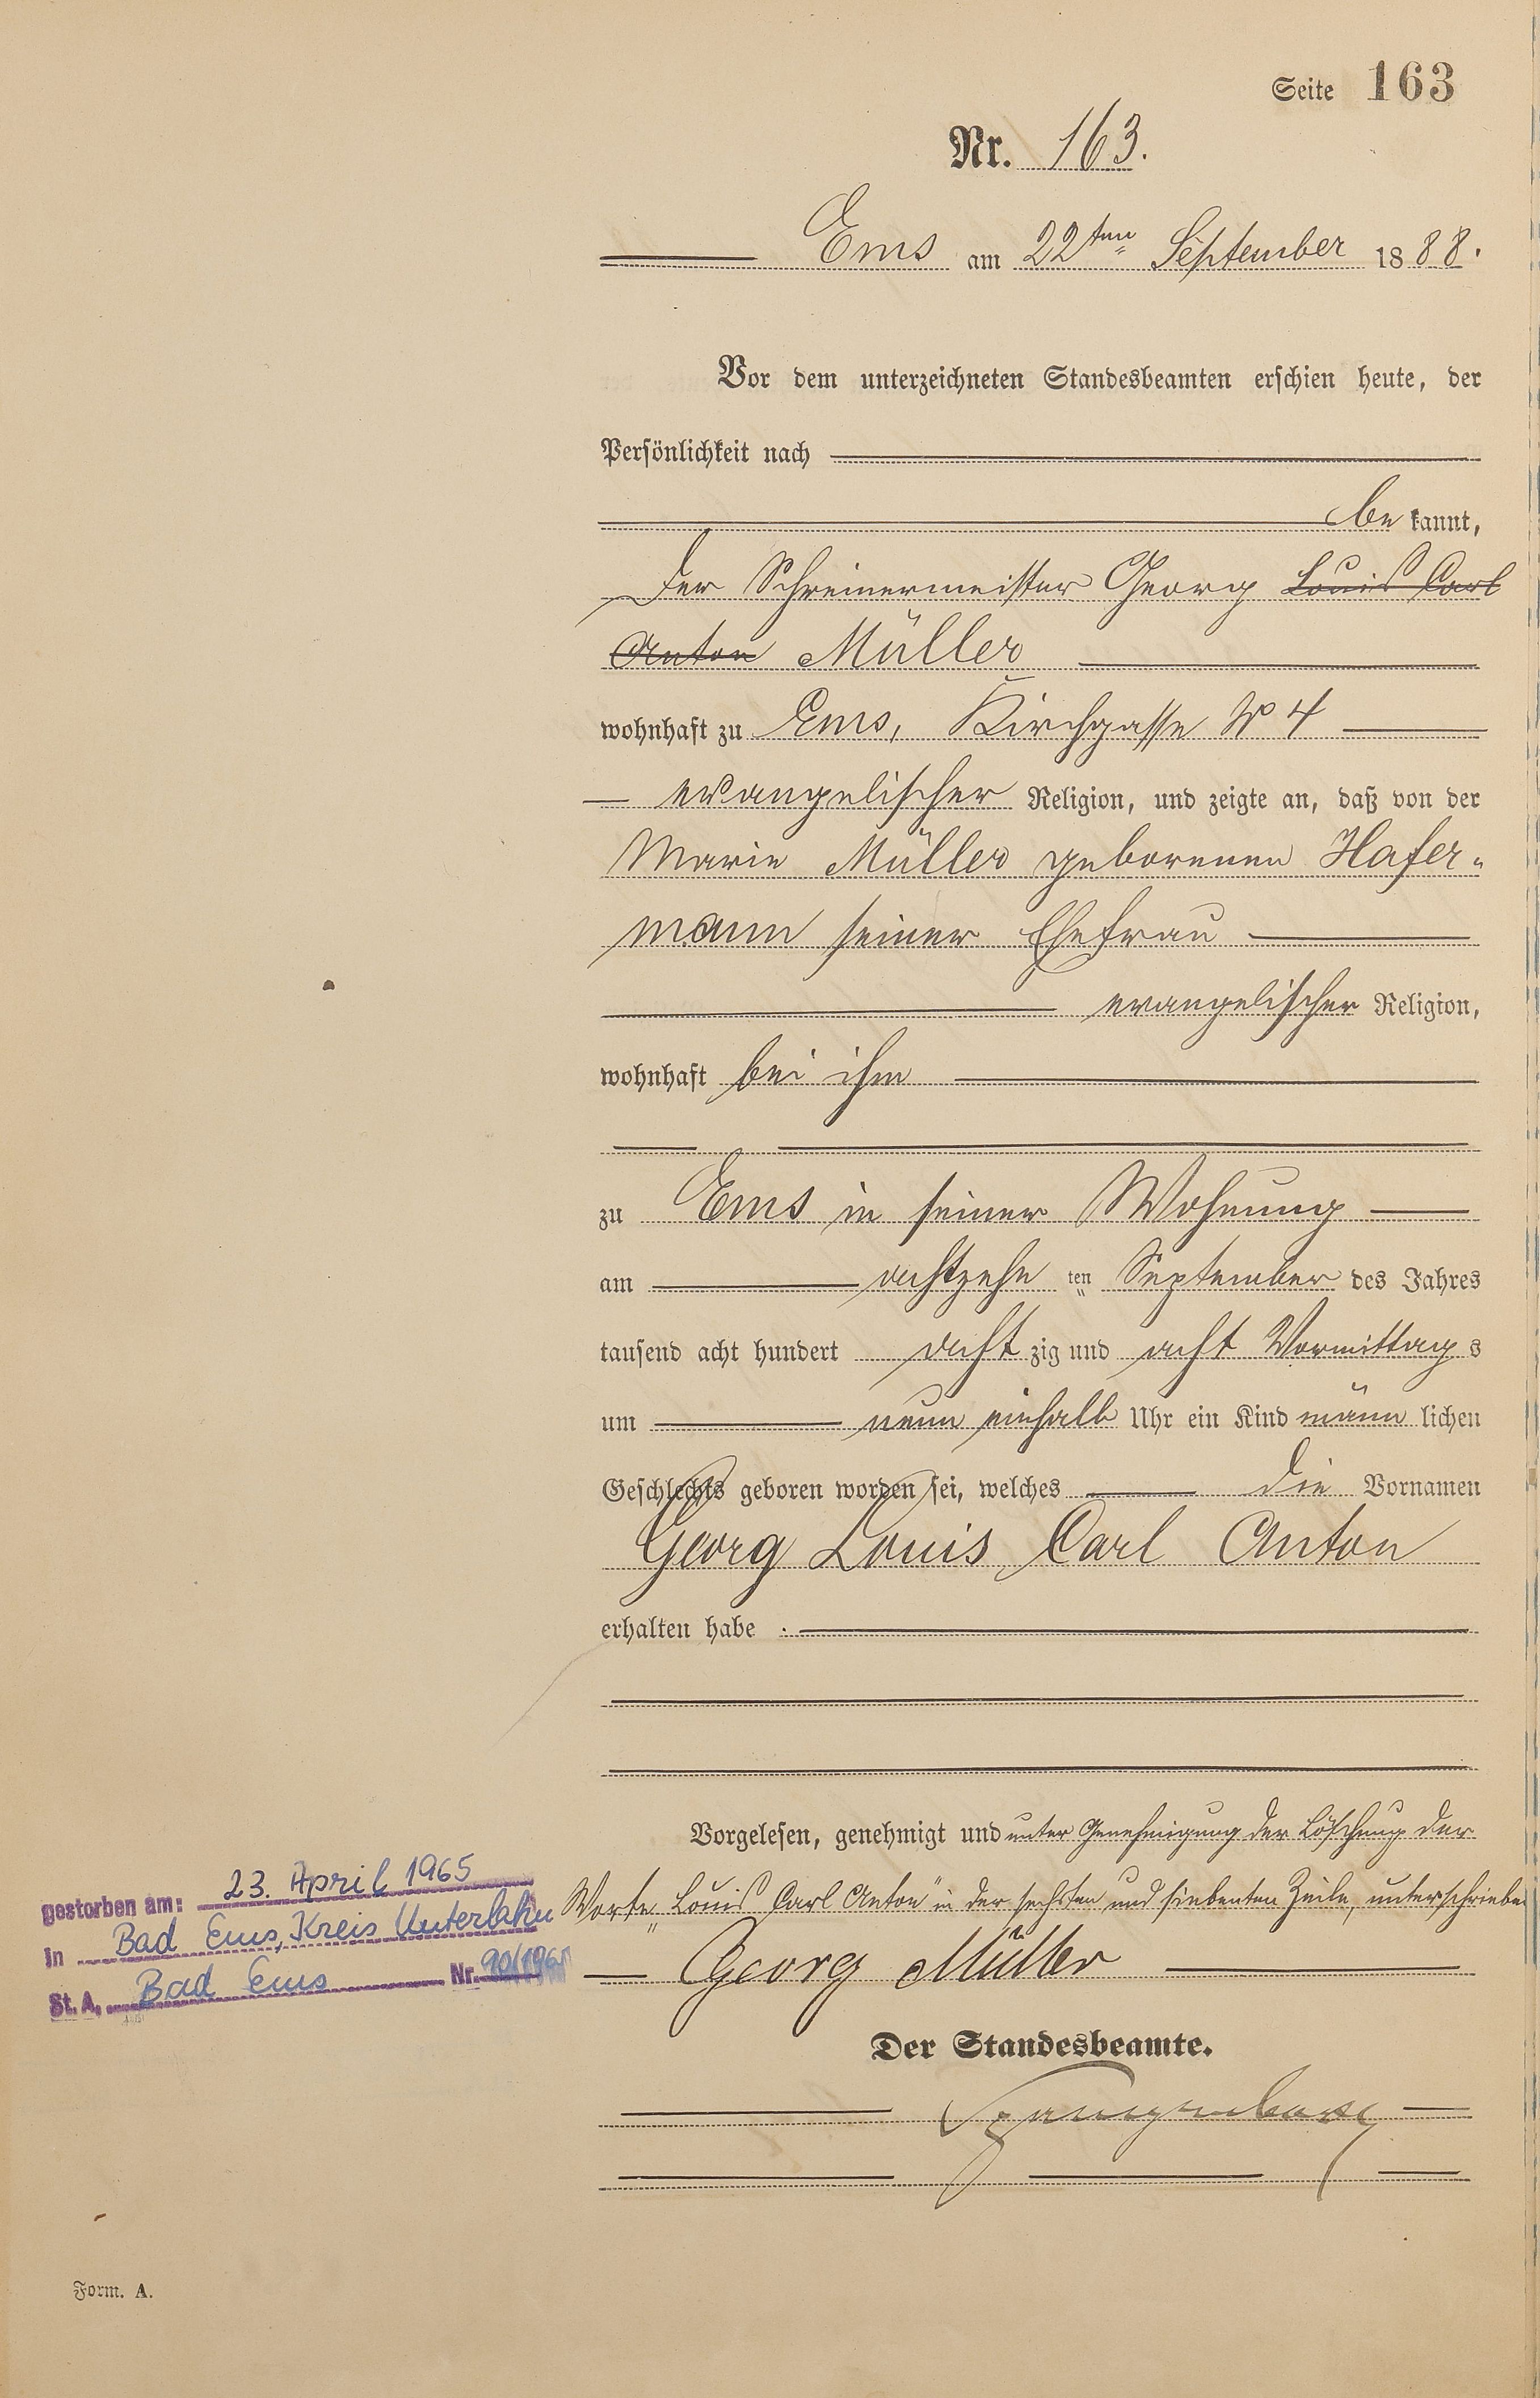 Seite 163
Nr. 163.
Ems am 22ten September 1888.
Vor dem unterzeichneten Standesbeamten erschien heute, der
Persönlichkeit nach
bekannt,
der Schreinermeister Georg Louis Carl
Anton Müller
wohnhaft zu Ems, Kirchgasse No 4
evangelischer Religion, und zeigte an, daß von der
Marie Müller geborenen Hafer-
mann seiner Ehefrau
evangelischer Religion,
wohnhaft bei ihm
zu Ems in seiner Wohnung
am achtzehn ten September des Jahres
tausend acht hundert achtzig und acht Vormittags
um neun einhalb Uhr ein Kind männlichen
Geschlechts geboren worden sei, welches die Vornamen
Georg Louis Carl Anton
erhalten habe.
Vorgelesen, genehmigt und unter Genehmigung der Löschung der
Worte „Louis Carl Anton" in der sechsten und siebenten Zeile, unterschrieben
Georg Müller
Der Standesbeamte.
Spangenberg
gestorben am: 23. April 1965
in Bad Ems, Kreis Unterlahn
St. A. Bad Ems Nr. 90/1965
Form. A.